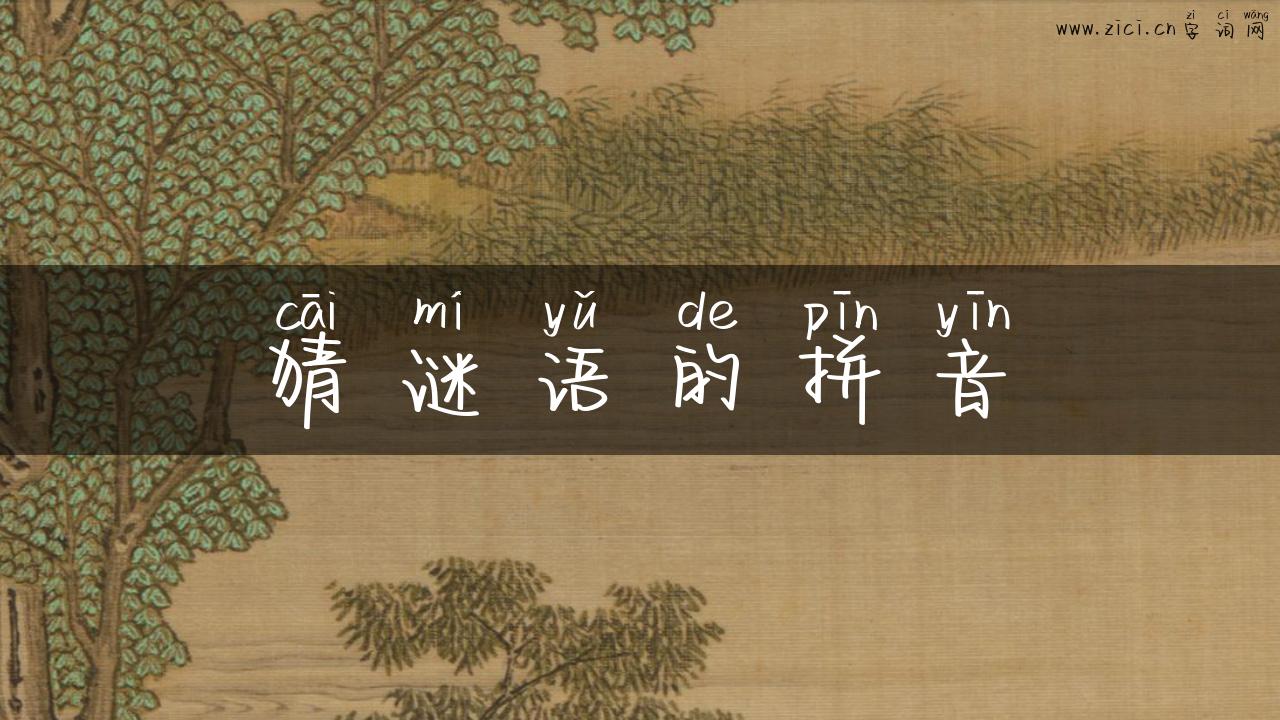 zì cí wǎng
www.zici.cn字词网
cāi mí yǔ de pīn yīn
猜谜语的拼音